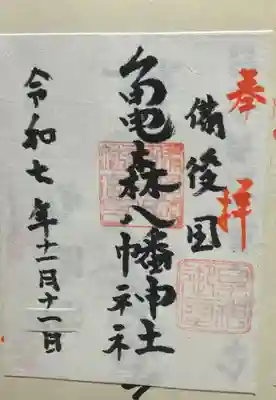 奉拝
備後国
亀森八幡神社
令和七年十一月十一日